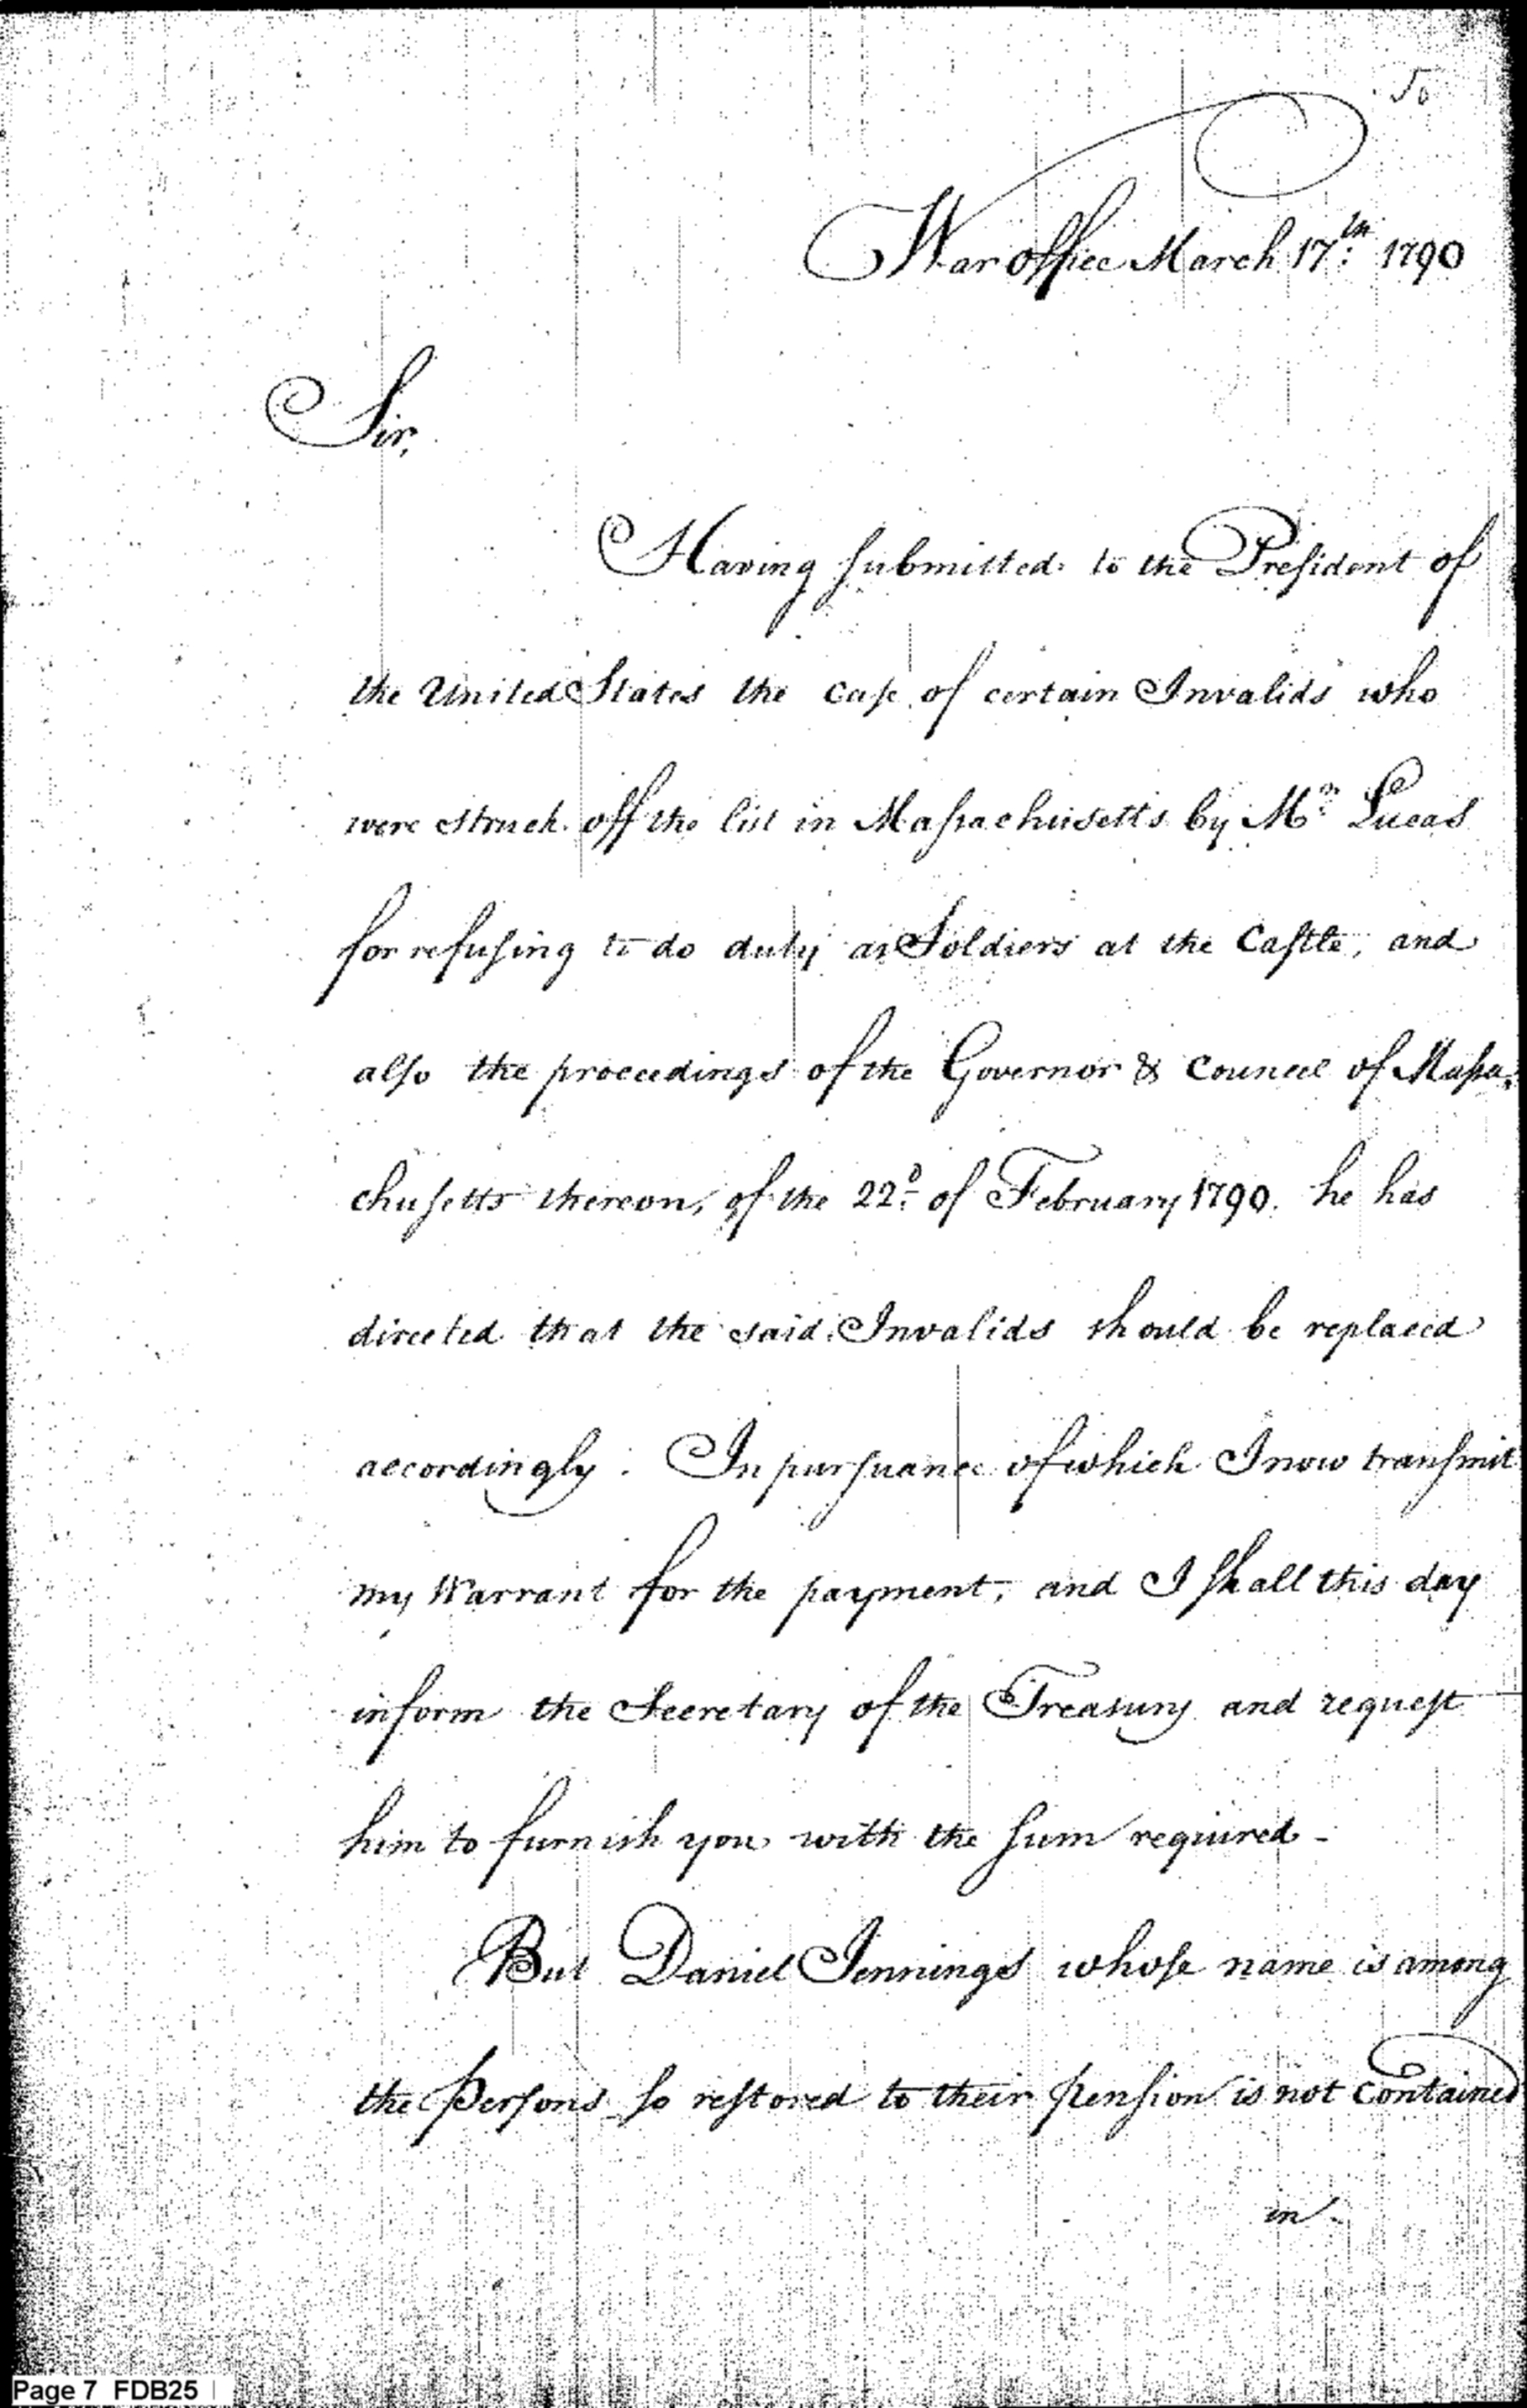 50
War office March 17th 1790
Sir,
Having submitted to the President of
the United States the case of certain Invalids who
were struck off the list in Massachusetts by Mr Lucas
for refusing to do duty as Soldiers at the Castle, and
also the proceedings of the Governor & Councel of Massa,
chusetts thereon, of the 22d of February 1790. he has
directed that the said Invalids should be replaced
accordingly. In pursuance of which I now transmit
my Warrant for the payment, and I shall this day
inform the Secretary of the Treasury and request
him to furnish you with the sum required -
But Daniel Jennings whose name is among
the Persons so restored to their pension is not Contained
in
Page 7 FDB25